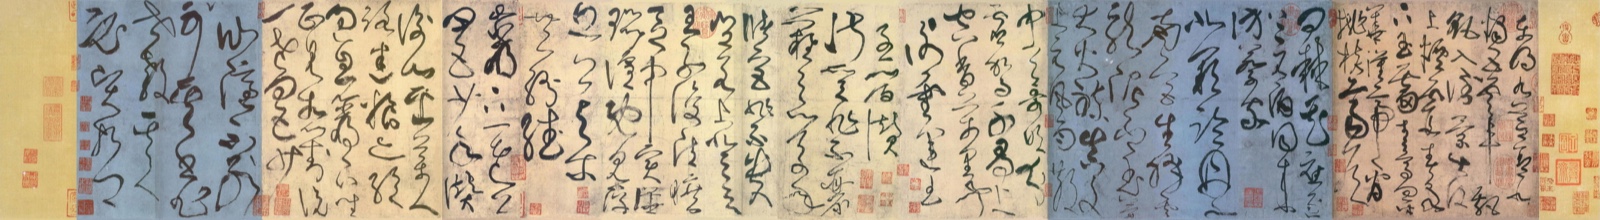 東明九芝盖北
燭五雲車飄
飖入倒景出没
上煙霞春泉
下玉霤青鳥向
金華漢帝看
桃核齊侯
問棘花應逐
上元酒同来
訪蔡家
北闕臨丹水
南宫生絳雲
龍泥印玉簡
大火鍊真文
上元風雨散
中天哥吹分
虚駕千尋上
空香万里聞
謝靈運王
子晋讚
淑質非不麗
難之以万年
儲宫非不貴
豈若上登天
王子復清曠
區中實譁囂
喧既見浮丘
公與爾共
紛繙
巖下一老公
四五少年讚
衡山採藥人
路迷粮亦絶
過息巖下坐
正見相對說
一老四五少
仙隱不可别
其書非世教
其人必賢哲